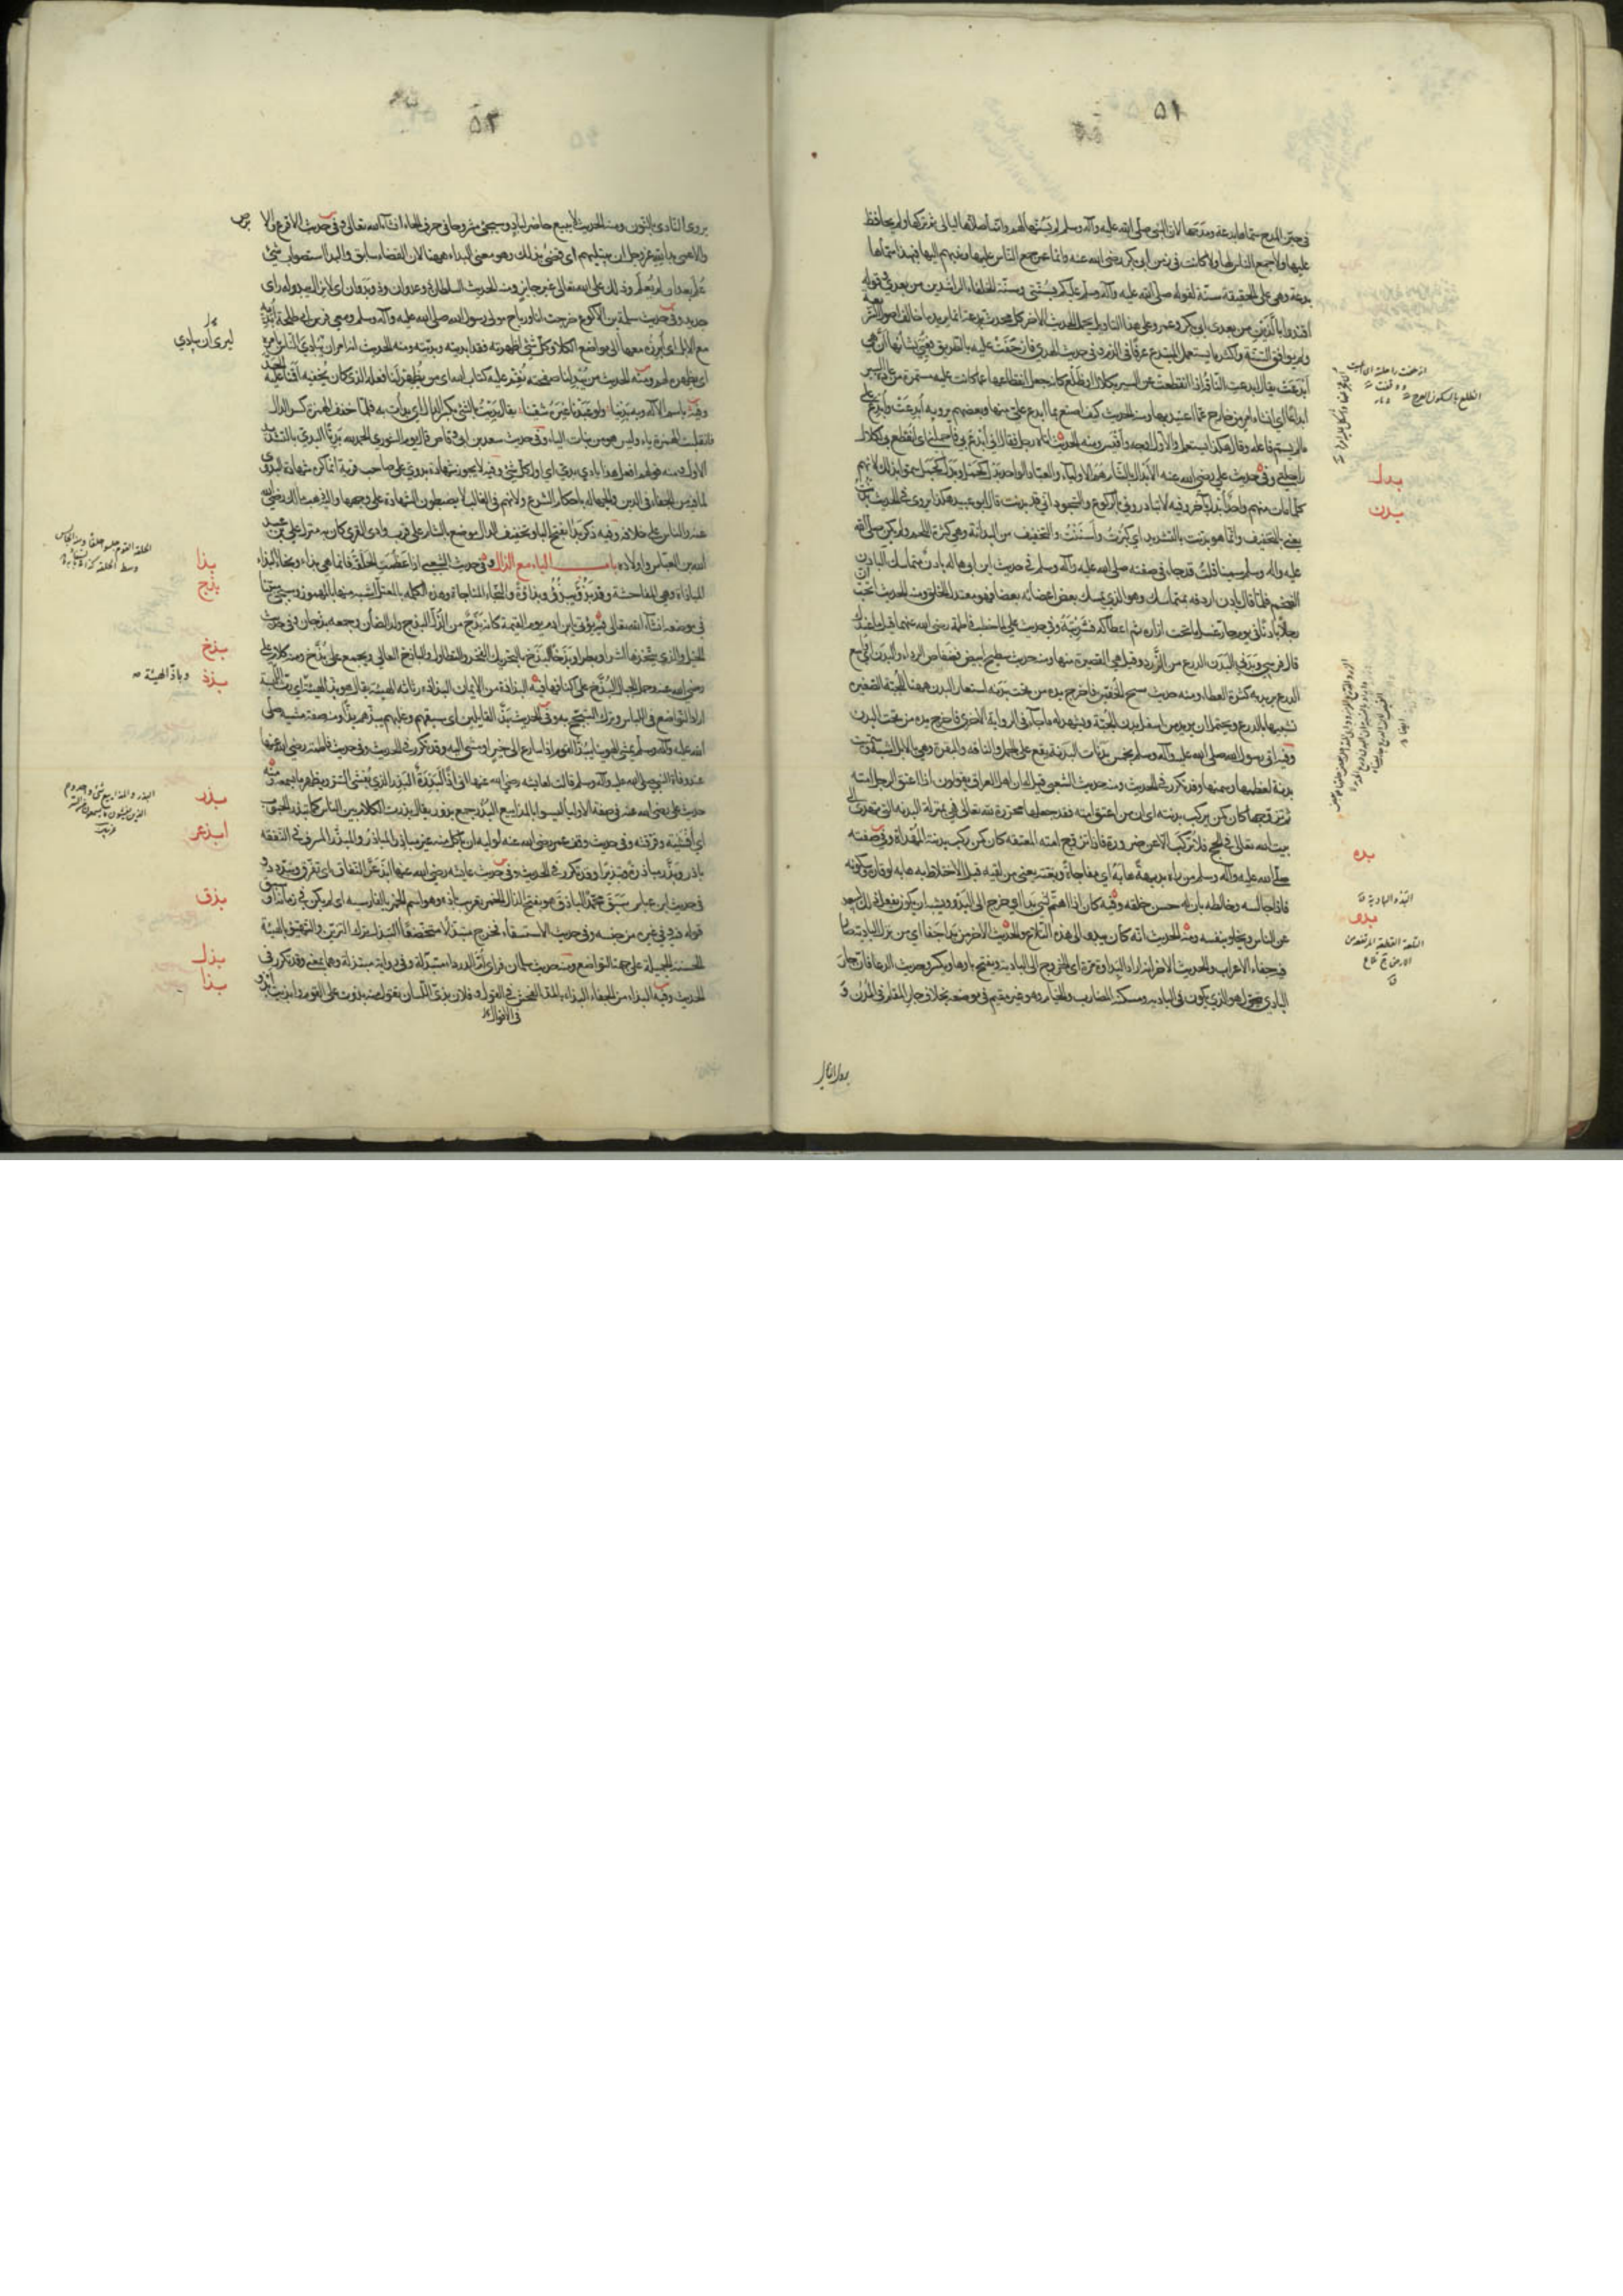 ٥١
في حيز المدح سماها بدعة ومدحها لان النبي صلى الله عليه وآله وسلم لم يسنها لهم وانما صلاها ليالي ثم تركها ولم يحافظ
عليها ولا جمع الناس لها ولا كانت في زمن ابي بكر رضي الله عنه وانما عمر جمع الناس عليها وندبهم اليها فبهذا سماها
بدعة وهي على الحقيقة سنة لقوله صلى الله عليه وآله وسلم عليكم بسنتي وسنة الخلفاء الراشدين من بعدي وقوله
اقتدوا بالذين من بعدي ابي بكر وعمر وعلى هذا التاويل يحمل الحديث الاخر كل محدثة بدعة انما يريد ما خالف اصول الشريعة
ولم يوافق السنة واكثر ما يستعمل المبتدع عرفا في الذم وفي حديث الهدي فازحفت عليه بالطريق فعيي بشانها ان هي
ابدعت يقال ابدعت الناقة اذا انقطعت عن السير بكلال او ظلع كانه جعل انقطاعها عما كانت عليه مستمرة من عادة السير
ابداعا اي انشاء امر خارج عما اعتيد منها ومنه الحديث كيف اصنع بما ابدع علي منها وبعضهم يرويه ابدعت وابدع على
ما لم يسم فاعله وقال هكذا يستعمل والاول اوجه واقيس ومنه الحديث اتاه رجل فقال اني ابدع بي فاحملني اي انقطع بي لكلال
راحلتي وفي حديث علي رضي الله عنه الابدال بالشام هم الاولياء والعباد الواحد بدل كحمل وبدل كجمل سموا بذلك لانهم
كلما مات منهم واحد ابدل باخر وفيه لا تبادروني بالركوع والسجود اني قد بدنت قال ابو عبيد هكذا روي في الحديث بدنت
يعني بالتخفيف وانما هو بدنت بالتشديد اي كبرت واسننت والتخفيف من البدانة وهي كثرة اللحم ولم يكن صلى الله
عليه وآله وسلم سمينا قلت قد جاء في صفته صلى الله عليه وآله وسلم في حديث ابن ابي هالة بادن متماسك البادن
الضخم فلما قال بادن اردفه بمتماسك وهو الذي يمسك بعض اعضائه بعضا فهو معتدل الخلق ومنه الحديث اتحب ان
رجلا بادنا في يوم حار غسل ما تحت ازاره ثم اعطاكه فشربته وفي حديث علي لما خطب فاطمة رضي الله عنهما قيل ما عندك
قال فرسي وبدني البدن الدرع من الزرد وقيل هي القصيرة منها ومنه حديث سطيح ابيض فضفاض الرداء والبدن اي واسع
الدرع يريد به كثرة العطاء ومنه حديث مسح الخفين فاخرج يده من تحت بدنه استعار البدن ههنا للجبة الصغيرة
تشبيها بالدرع ويحتمل ان يريد من اسفل بدن الجبة ويشهد له ما جاء في الرواية الاخرى فاخرج يده من تحت البدن
وفيه اتي رسول الله صلى الله عليه وآله وسلم بخمس بدنات البدنة يقع على الجمل والناقة والبقرة وهي بالابل اشبه وسميت
بدنة لعظمها وسمنها وقد تكررت في الحديث ومنه حديث الشعبي قيل له ان اهل العراق يقولون اذا اعتق الرجل امته
ثم تزوجها كان كمن يركب بدنته اي ان من اعتق امته فقد جعلها محررة لله تعالى فهي بمنزلة البدنة التي تهدى الى
بيت الله تعالى في الحج فلا تركب الا عن ضرورة فاذا تزوج امته المعتقة كان كمن ركب بدنته المهداة وفي صفته
صلى الله عليه وآله وسلم من رآه بديهة هابه اي مفاجاة وبغتة يعني من لقيه قبل الاختلاط به هابه لوقاره وسكونه
فاذا جالسه وخالطه بان له حسن خلقه وفيه كان اذا اهتم لشيء بدا اي خرج الى البدو ويشبه ان يكون يفعل ذلك ليبعد
عن الناس ويخلو بنفسه ومنه الحديث انه كان يبدو الى هذه التلاع والحديث الاخر من بدا جفا اي من نزل البادية صار
فيه جفاء الاعراب والحديث الاخر انه اراد البداوة مرة اي الخروج الى البادية وبفتح باؤها وتكسر وحديث الدعاء فان جار
البادي يتحول هو الذي يكون في البادية ومسكنه المضارب والخيام وهو غير مقيم في موضعه بخلاف جار المقام في المدن و
بدل
بدن
بده
بدو
٥٢
يروى النادي بالنون ومنه الحديث لا يبيع حاضر لباد وسيجيء مشروحا في حرف الحاء ان شاء الله تعالى وفي حديث الاقرع والابرص
والاعمى بدا لله عز وجل ان يبتليهم اي قضى بذلك وهو معنى البداء ههنا لان القضاء سابق والبداء استصواب شيء
علم بعد ان لم يعلم وذلك على الله تعالى غير جايز ومنه الحديث السلطان ذو عدوان وذو بدوان اي لا يزال يبدو له راي
جديد وفي حديث سلمة بن الاكوع خرجت انا ورباح مولى رسول الله صلى الله عليه وآله وسلم ومعي فرس ابي طلحة ابديه
مع الابل اي ابرزه معها الى مواضع الكلا وكل شيء اظهرته فقد ابديته وبديته ومنه الحديث انه امر ان يبادي الناس بامره
اي يظهره لهم ومنه الحديث من يبد لنا صفحته نقم عليه كتاب الله اي من يظهر لنا فعله الذي كان يخفيه اقمنا عليه الحد
وفيه باسم الاله وبه بدينا ولو عبدنا غيره شقينا يقال بديت بالشيء بكسر الدال اي بدات به فلما خفف الهمزة كسر الدال
فانقلبت الهمزة ياء وليس هو من بنات الياء وفي حديث سعد بن ابي وقاص قال يوم الشورى الحمد لله بديا البدي بالتشديد
الاول ومنه قولهم افعل هذا بادي بدي اي اول كل شيء وفيه لا يجوز شهادة بدوي على صاحب قرية انما كره شهادة البدوي
لما فيه من الجفاء في الدين والجهالة باحكام الشرع ولانهم في الغالب لا يضبطون الشهادة على وجهها واليه ذهب مالك رضي الله
عنه والناس على خلافه وفيه ذكر بدا بفتح الباء وتخفيف الدال موضع بالشام على قرب وادي القرى كان به منزل علي بن عبد
الله بن العباس واولاده باب الباء مع الذال في حديث الشعبي اذا عظمت الحلقة فانما هي بذاء ونجاء البذاء
المباذاة وهي المفاحشة وقد بذو يبذو بذاءة والنجاء المناجاة وهذه الكلمة بالمعتل اشبه منها بالمهموز وسيجيء مبينا
في موضعه ان شاء الله تعالى فيه يؤتى بابن ادم يوم القيمة كانه بذج من الذل البذج ولد الضان وجمعه بذجان وفي حديث
الخيل والذي يتخذها اشرا وبطرا وبذخا البذخ بالتحريك الفخر والتطاول والباذخ العالي ويجمع على بذخ ومنه كلام علي
رضي الله عنه وحمل الجبال البذخ على اكتافها فيه البذاذة من الايمان البذاذة رثاثة الهيئة يقال هو بذ الهيئة اي رث اللبسة
اراد التواضع في اللباس وترك التبجح به وفي الحديث بذ القايلين اي سبقهم وغلبهم يبذهم بذا ومنه صفة مشيه صلى
الله عليه وآله وسلم يمشي الهوينا يبذ القوم اذا سارع الى خير او مشى اليه وقد تكرر في الحديث وفي حديث فاطمة رضي الله عنها
عند وفاة النبي صلى الله عليه وآله وسلم قالت لعائشة رضي الله عنها اني اذا لبذرة البذر الذي يفشي السر ويظهر ما يسمعه ومنه
حديث علي رضي الله عنه في صفة الاولياء ليسوا بالمذاييع البذر جمع بذور يقال بذرت الكلام بين الناس كما تبذر الحبوب
اي افشيته وفرقته وفي حديث وقف عمر رضي الله عنه لوليه ان ياكل منه غير مباذر المباذر والمبذر المسرف في النفقة
باذر وبذر مباذرة وتبذيرا وقد تكرر في الحديث وفي حديث عائشة رضي الله عنها ابذعر النفاق اي تفرق وتبدد
في حديث ابن عباس سبق محمد الباذق هو بفتح الذال الخمر تعريب باذه وهو اسم الخمر بالفارسية اي لم يكن في زمانه او سبق
قوله فيه وفي غيره من جنسه وفي حديث الاستسقاء فخرج متبذلا متخضعا التبذل ترك التزين والتهيئ بالهيئة
الحسنة الجميلة على جهة التواضع ومنه حديث سلمان فراى ام الدرداء متبذلة وفي رواية مبتذلة وهما بمعنى وقد تكرر في
الحديث وفيه البذاء من الجفاء البذاء بالمد الفحش في القول وفلان بذي اللسان يقول منه بذوت على القوم وابذيت ابذو
في الاقوال
بذا
بذج
بذخ
بذذ
وباذ الهيئة
بذر
ابذعر
بذق
بذل
بذا